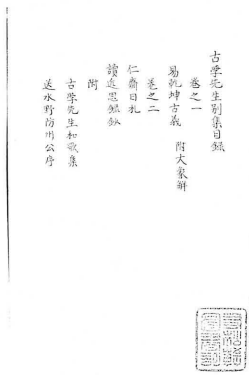 古學先生別集目錄
卷之一
易乾坤古義 附大象解
卷之二
仁齋日札
讀近思錄鈔
附
古學先生和歌集
送水野防州公序